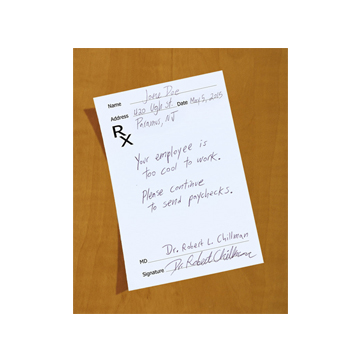 Name Jane Doe
Address 1120 High St. Date May 5, 2005
Parsons, NJ
Rx
Your employee is
too cool to work.
Please continue
to send paychecks.
Dr. Robert L. Chillman
MD
Signature Dr. Robert Chillman